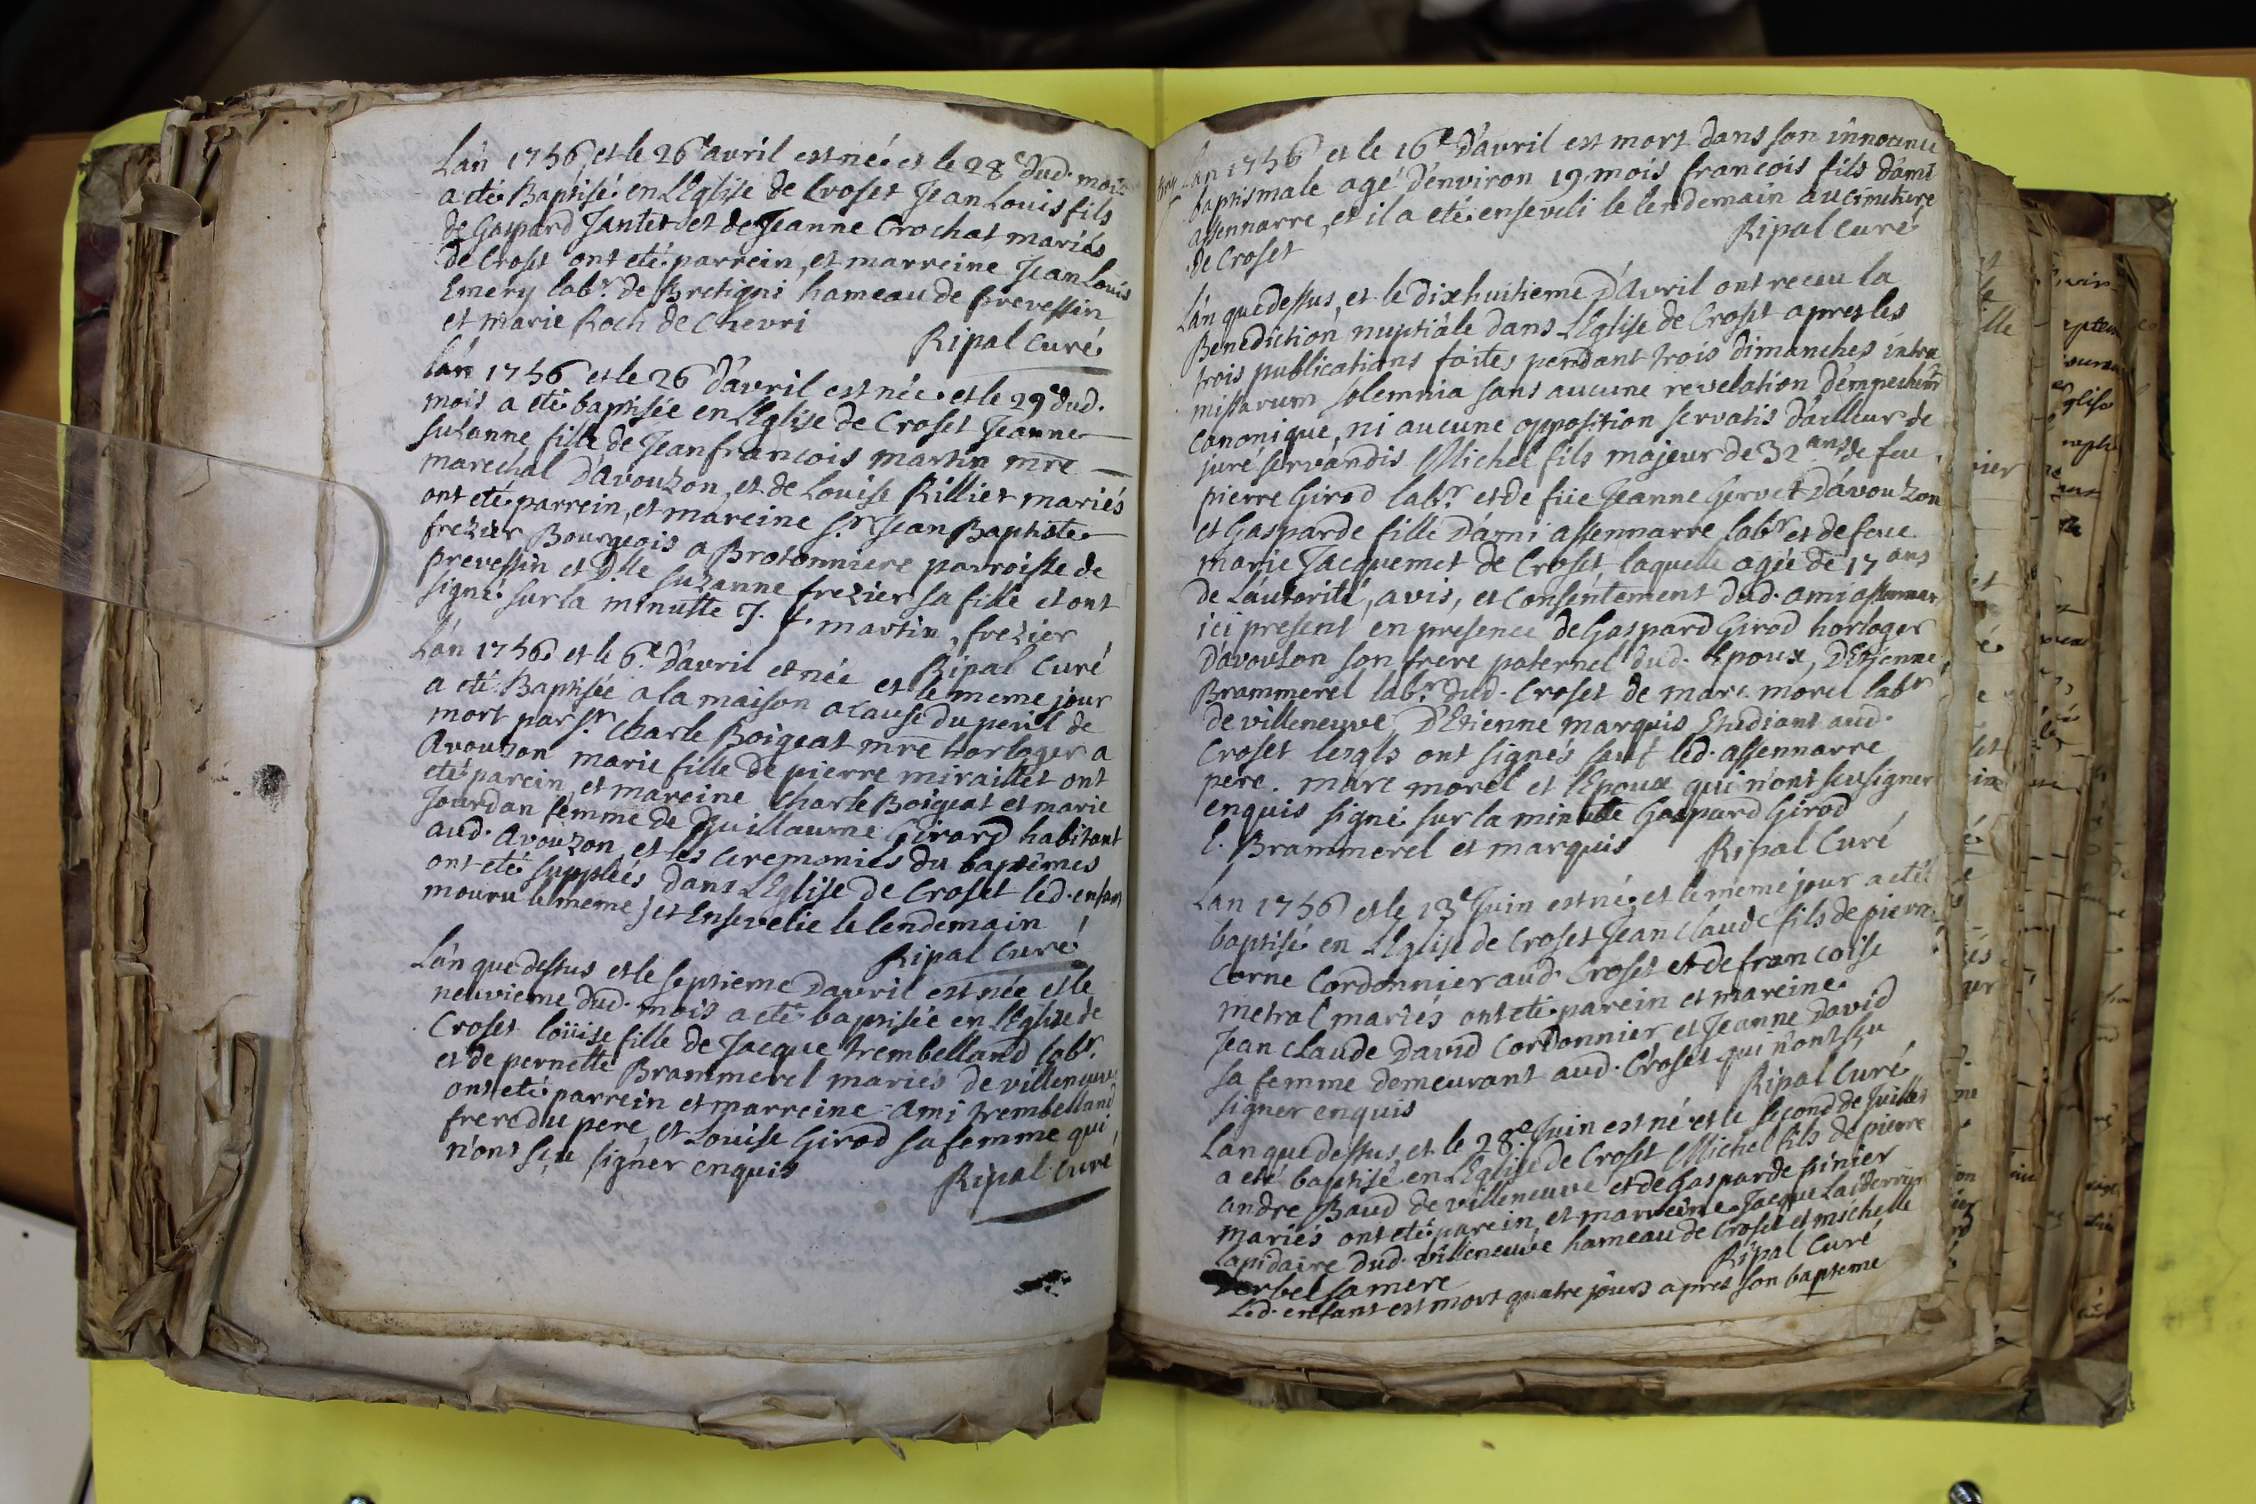 Lán 1756 et le 26e avril est né et le 28e dud. mois
a eté Baptisé en LEglise de Croset Jean Louis fils
de Gaspard Jantet et de Jeanne Crochat mariés
de Croset ont eté parrein, et marreine Jean Louis
Emery labr. de Bretigni hameau de prevessin
et marie Roch de Chevri
Ripal curé
Lán 1756 et le 26 d'avril est née et le 29e dud.
mois a eté baptisée en LEglise de Croset Jeanne
suzanne fille de Jean francois martin mre
marechal D'avouzon, et de Louise Rilliet mariés
ont eté parrein, et mareine Sr. Jean Baptiste
frezier Bourgeois a Brotonniere parroisse de
prevessin et Dlle suzanne frezier sa fille et ont
signé sur la minutte J. f. martin, frezier
Ripal Curé
Lán 1756 et le 6e D'avril et née et le meme jour
a eté Baptisée a la maison a cause du peril de
mort par Sr. Charle Boigeat mre horloger a
Avouzon marie fille de pierre miraillet ont
eté parein, et mareine Charle Boigeat et marie
Jourdan femme de Guillaume Girard habitant
aud. Avouzon et les ceremonies du baptêmes
ont eté supplées dans LEglise de Croset led. enfant
mouru le meme j et Ensevelie le lendemain
Ripal Curé
Lán que dessus et le septieme Davril est née et le
neuvieme dud. mois a eté baptisée en LEglise de
Croset Loüise fille de Jacque trembelland labr.
et de pernette Brammerel mariés de villeneuve
ont eté parrein et marreine Ami trembelland
frere du pere, et Louise Girod sa femme qui
n'ont sçu signer enquis
Ripal Curé
Lan 1756 et le 16e D'avril est mort dans son innocence
baptismale agé d'environ 19 mois francois fils D'ami
assennarre, et il a eté enseveli le lendemain au cimetiere
de Croset
Ripal curé
Lán que dessus, et le dixhuitieme D'avril ont receu la
Benediction nuptiale dans LEglise de Croset apres les
trois publications faites pendant trois dimanches intra
missarum solemnia sans aucune revelation d'empechemt
canonique, ni aucune opposition servatis d'ailleur de
jure servandis Michel fils majeur de 32 ans de feu
pierre Girod labr. et de füe Jeanne Gervet D'avouzon
et Gasparde fille D'ami assennarre labr. et de feue
marie Jacquemet de Croset laquelle agée de 17 ans
de Láutorité, avis, et consentement dud. ami assennarre
ici present en presence de Gaspard Girod horloger
D'avouzon son frere paternel dud. Epoux, D'Etienne
Brammerel labr. dud. Croset de marc morel labr
de villeneuve, D'Etienne marquis Etudiant aud.
Croset lesqls ont signés sauf led. assennarre
pere. marc morel et lEpoux qui n'ont scu signer
enquis signé sur la minutte Gaspard Girod
E. Brammerel et marquis Ripal Curé
Lan 1756 et le 13e Juin est né et le meme jour a eté
baptisé en LEglise de Croset Jean Claude fils de pierre
Corne Cordonnier aud. Croset et de francoise
metral mariés ont eté parein et mareine
Jean Claude David Cordonnier et Jeanne David
sa femme demeurant aud. Croset qui n'ont sçu
signer enquis
Ripal Curé
Lan que dessus, et le 28e Juin est né et le second de Juillet
a eté baptisé en LEglise de Croset Michel fils de pierre
andre Baud de villeneuve et de Gasparde finier
mariés ont eté parein, et marreine Jacque
Lapidaire dud. villeneuve hameau de Croset et michelle
sa mere
Ripal Curé
Led. enfant est mort quatre jours apres son bapteme